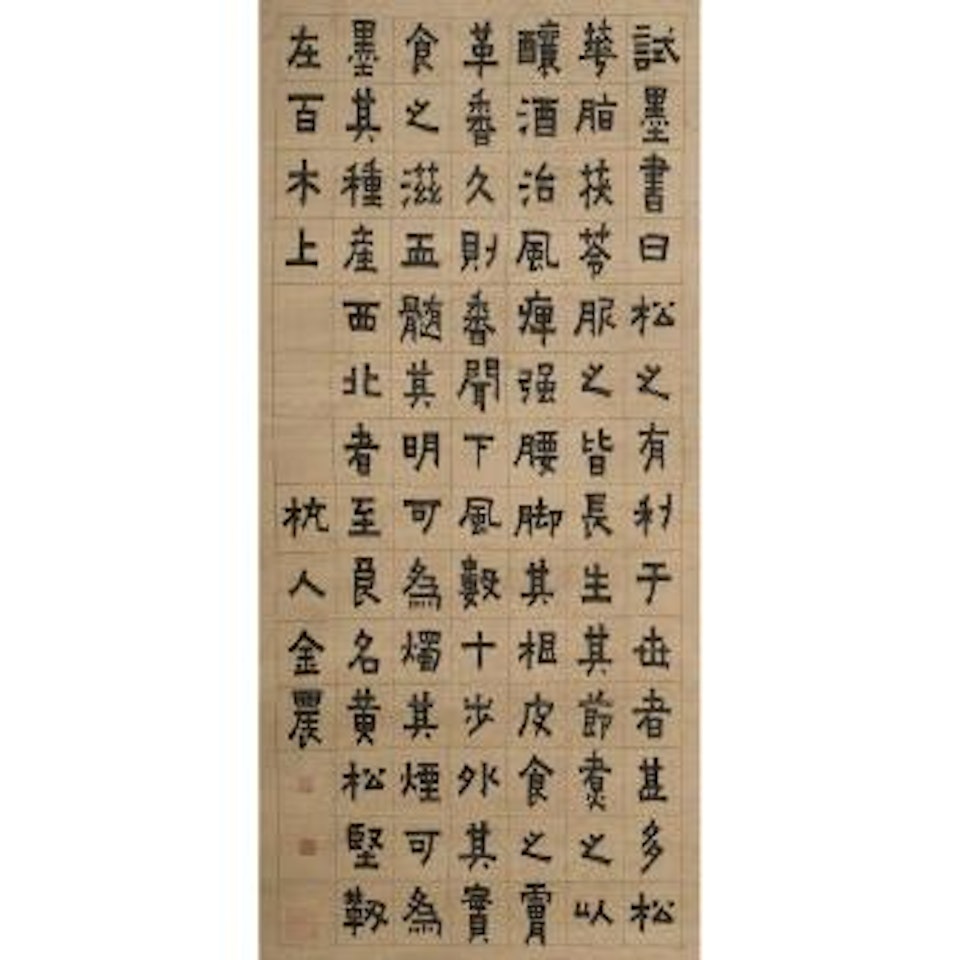 試墨書曰松之有利于世者甚多松
華脂茯苓服之皆長生其節煮之以
釀酒治風痺强腰脚其根皮食之膚
革香久則香聞下風數十步外其實
食之滋血髓其明可為燭其煙可為
墨其種產西北者至良名黃松堅韌
在百木上
杭人金農